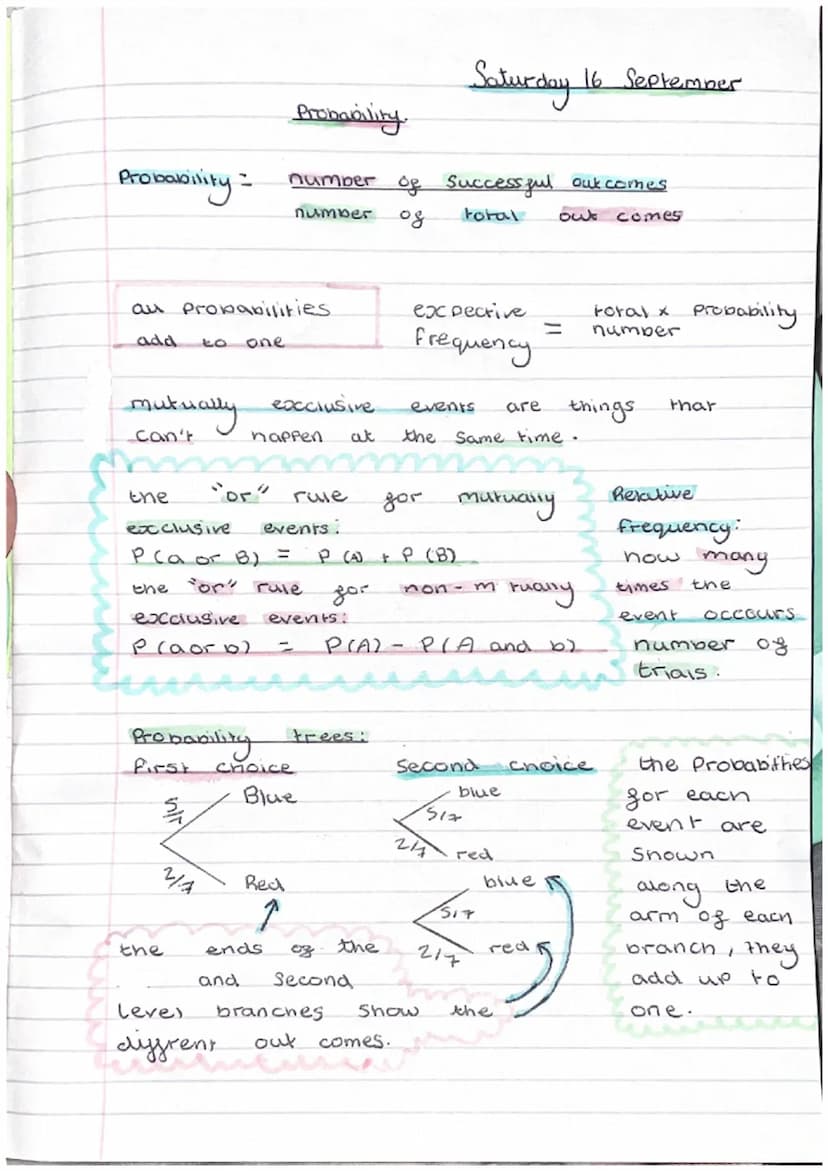 Saturday 16 September
Probability.
Probability = number of successful outcomes
number of total out comes
all probabilities
add to one
excpective
frequency
=
total x probability
number
mutually excclusive events are things that
can't happen at the same time.
the "or" rule for mutually
exclusive events:
P(a or B) = P(A) + P(B)
the "or" rule for non-m tually
exclusive events:
P(a or b) = P(A) - P(A and b)
Relative
frequency:
how many
times the
event occours
number of
trials.
Probability trees:
first choice
5/7 Blue
2/7 Red
Second choice
blue
5/7
2/7 red
blue
5/7
2/7 red
the Probabilities
for each
event are
shown
along the
arm of each
branch, they
add up to
one.
the ends of the
and second
level branches show the
diffrent out comes.